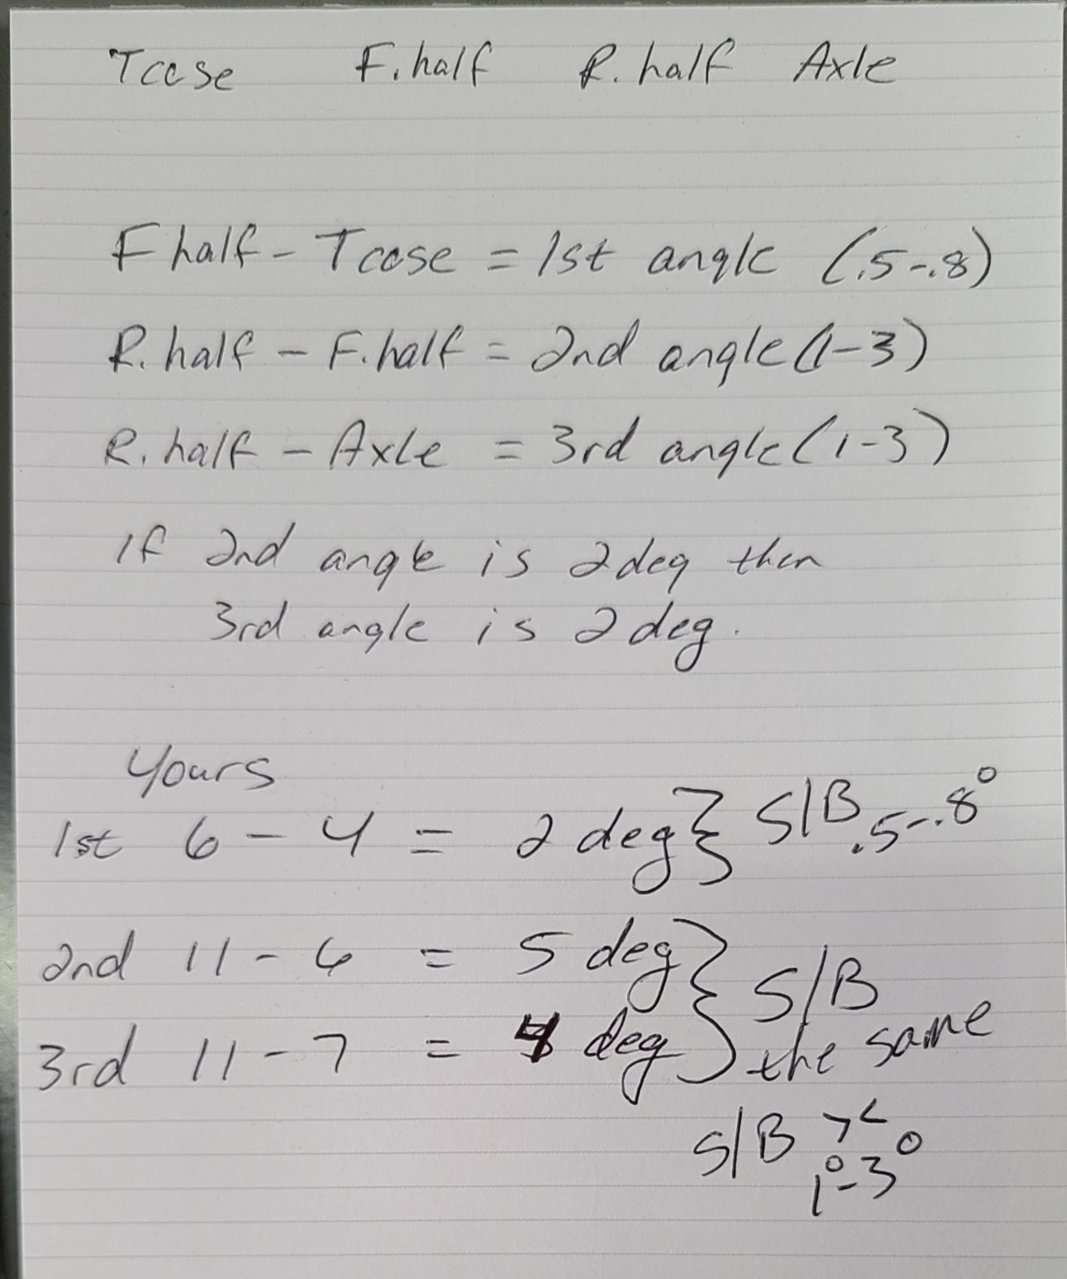 Tcase F.half R.half Axle
F half - Tcase = 1st angle (.5-.8)
R.half - F.half = 2nd angle (1-3)
R.half - Axle = 3rd angle (1-3)
If 2nd angle is 2deg then
3rd angle is 2deg.
Yours
1st 6 - 4 = 2 deg } S/B .5-.8°
2nd 11 - 6 = 5 deg } S/B
3rd 11 - 7 = 4 deg } the same
S/B > <
1°-3°